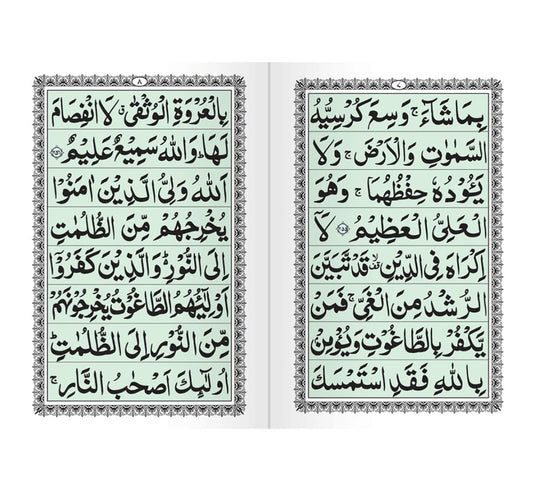 ٧
بِمَاشَآءَ ۚ وَسِعَ كُرْسِيُّهُ
السَّمٰوٰتِ وَالْاَرْضَ ۚ وَلَا
يَـُٔوْدُهٗ حِفْظُهُمَا ۚ وَهُوَ
الْعَلِيُّ الْعَظِيْمُ ﴿٢٥٥﴾ لَآ
اِكْرَاهَ فِى الدِّيْنِ ۙ قَدْ تَّبَيَّنَ
الرُّشْدُ مِنَ الْغَيِّ ۚ فَمَنْ
يَّكْفُرْ بِالطَّاغُوْتِ وَيُؤْمِنْ
بِاللّٰهِ فَقَدِ اسْتَمْسَكَ
٨
بِالْعُرْوَةِ الْوُثْقٰى ۤ لَا انْفِصَامَ
لَهَا ؕ وَاللّٰهُ سَمِيْعٌ عَلِيْمٌ ﴿٢٥٦﴾
اَللّٰهُ وَلِيُّ الَّذِيْنَ اٰمَنُوْا
يُخْرِجُهُمْ مِّنَ الظُّلُمٰتِ
اِلَى النُّوْرِ ؕ وَالَّذِيْنَ كَفَرُوْٓا
اَوْلِيٰٓئُهُمُ الطَّاغُوْتُ يُخْرِجُوْنَهُمْ
مِّنَ النُّوْرِ اِلَى الظُّلُمٰتِ ؕ
اُولٰٓئِكَ اَصْحٰبُ النَّارِ ۚ